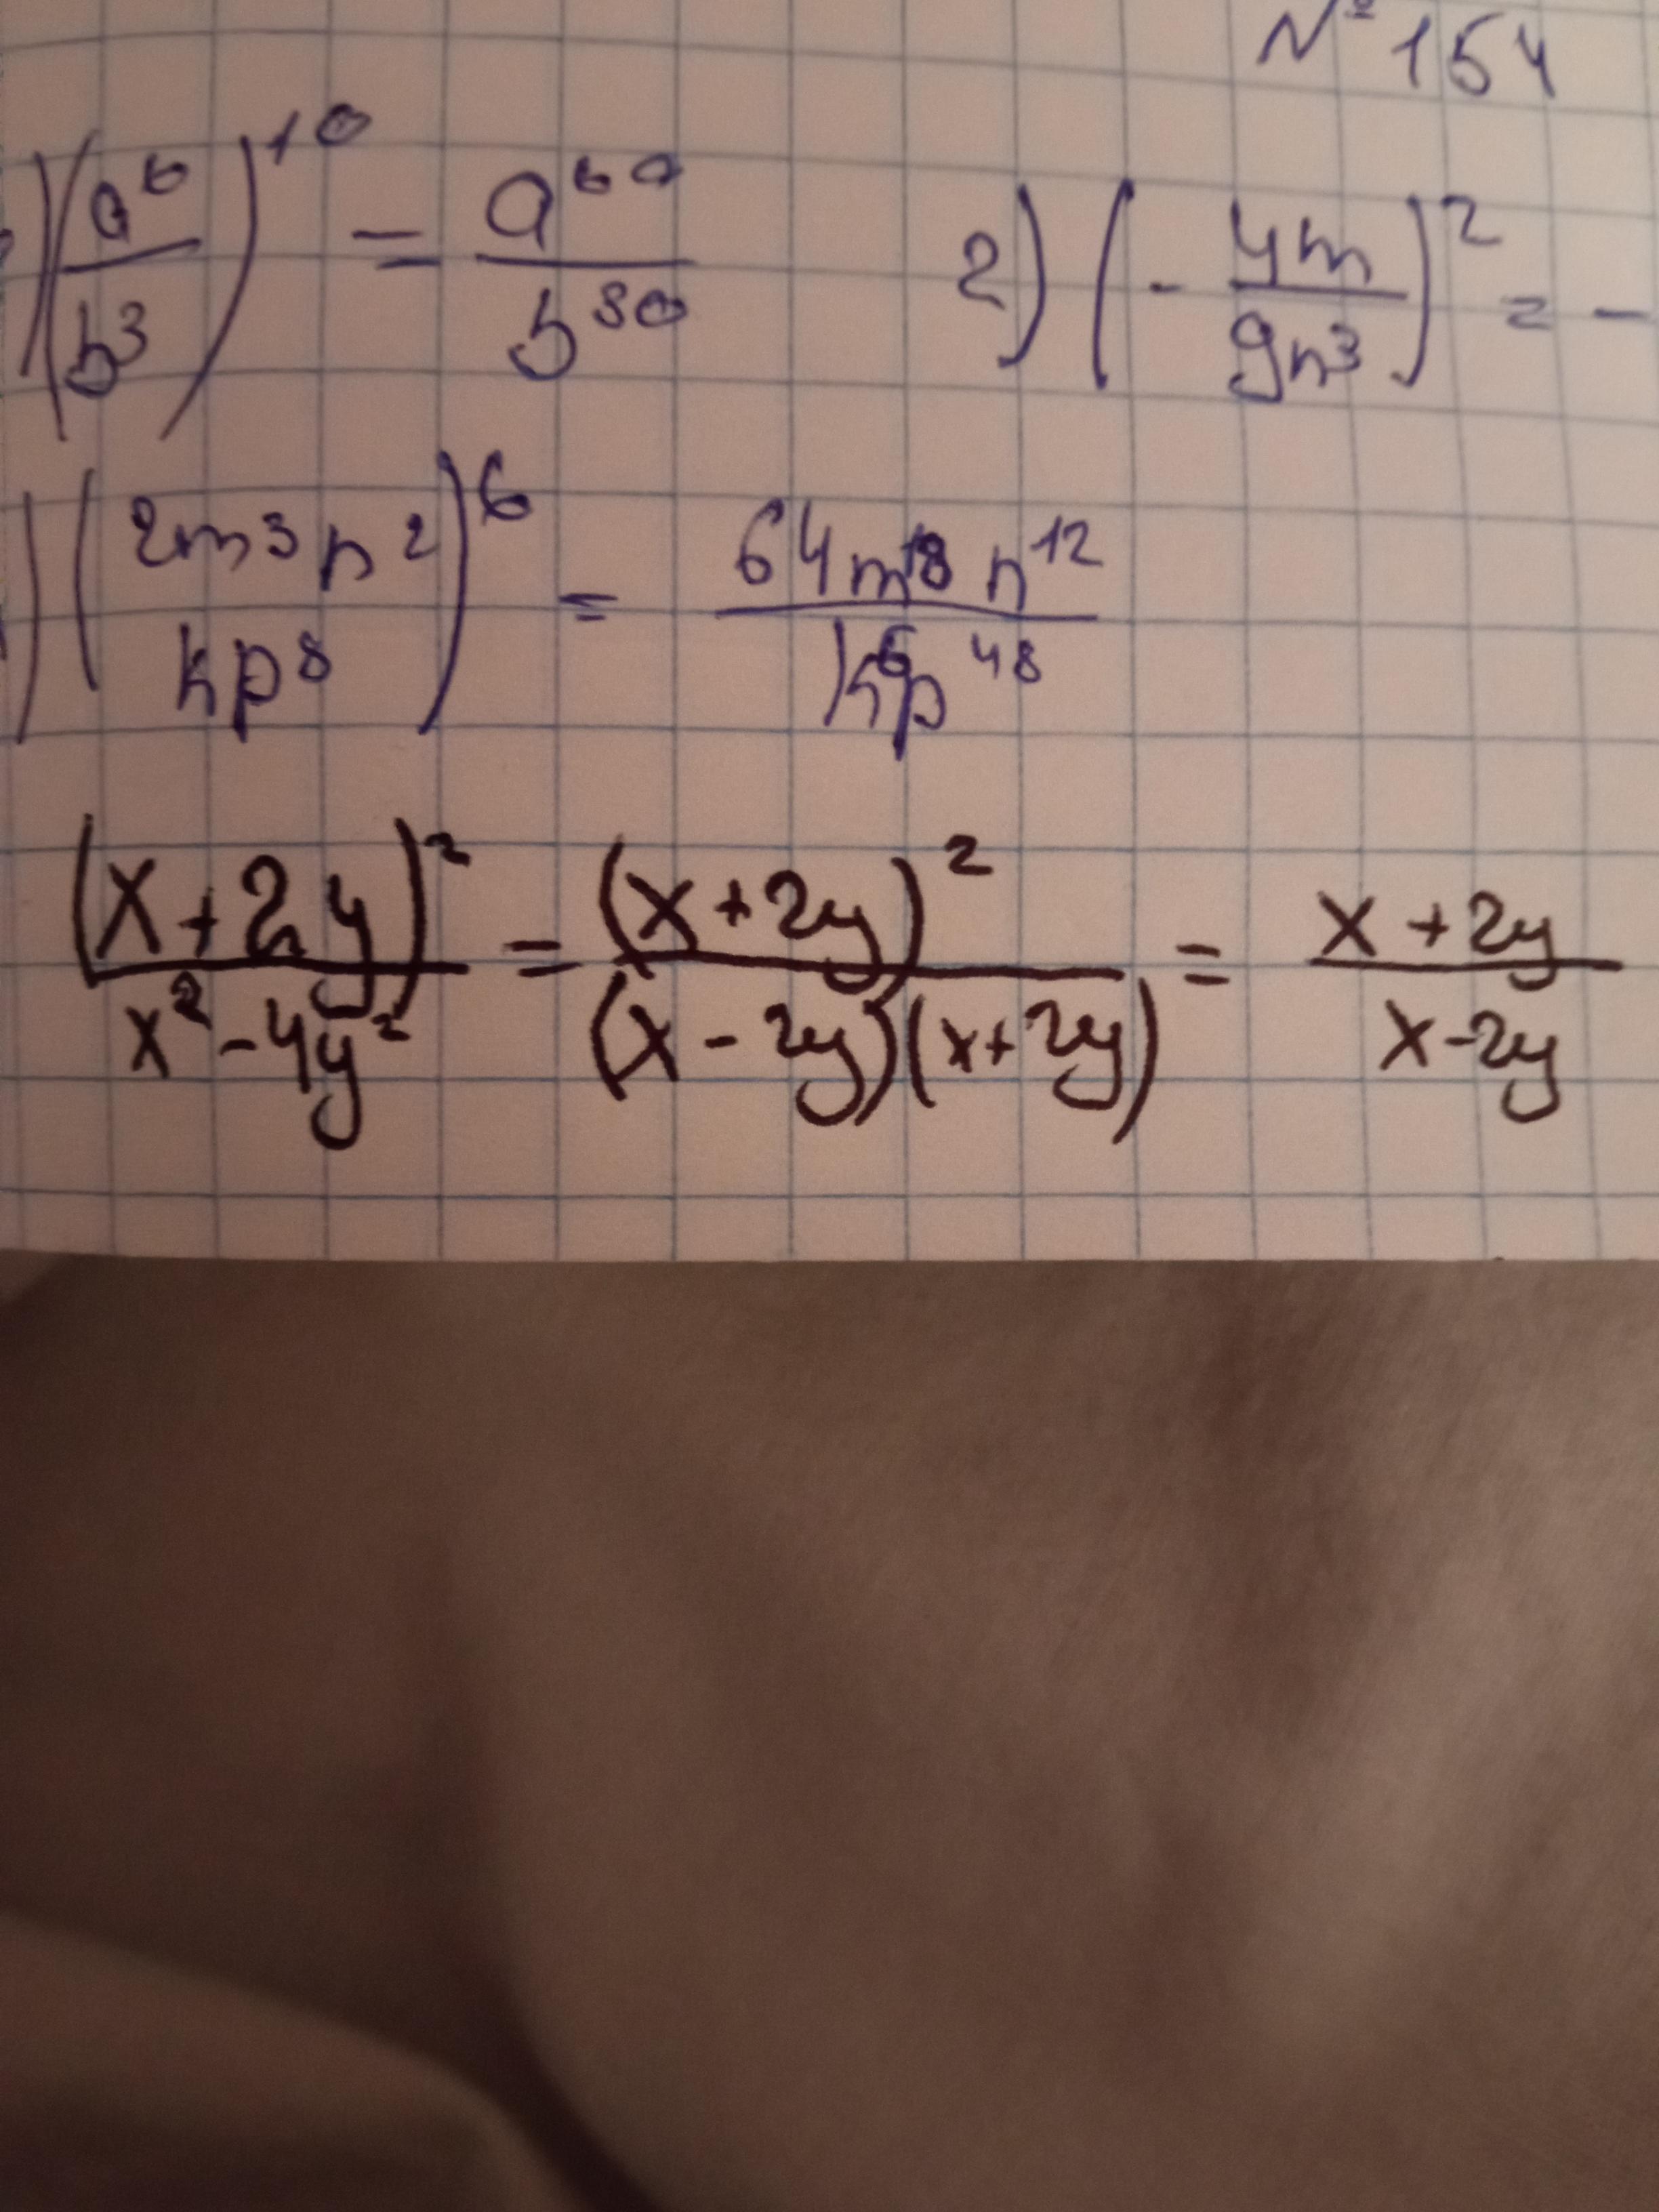 № 154
)(a^6/b^3)^10 = a^60/b^30 2) (-4m/9n^3)^2 = -
) (2m^3n^2 kp^8)^6 = 64m^18n^12/k^6p^48
(x+2y)^2/x^2-4y^2 = (x+2y)^2/(x-2y)(x+2y) = x+2y/x-2y